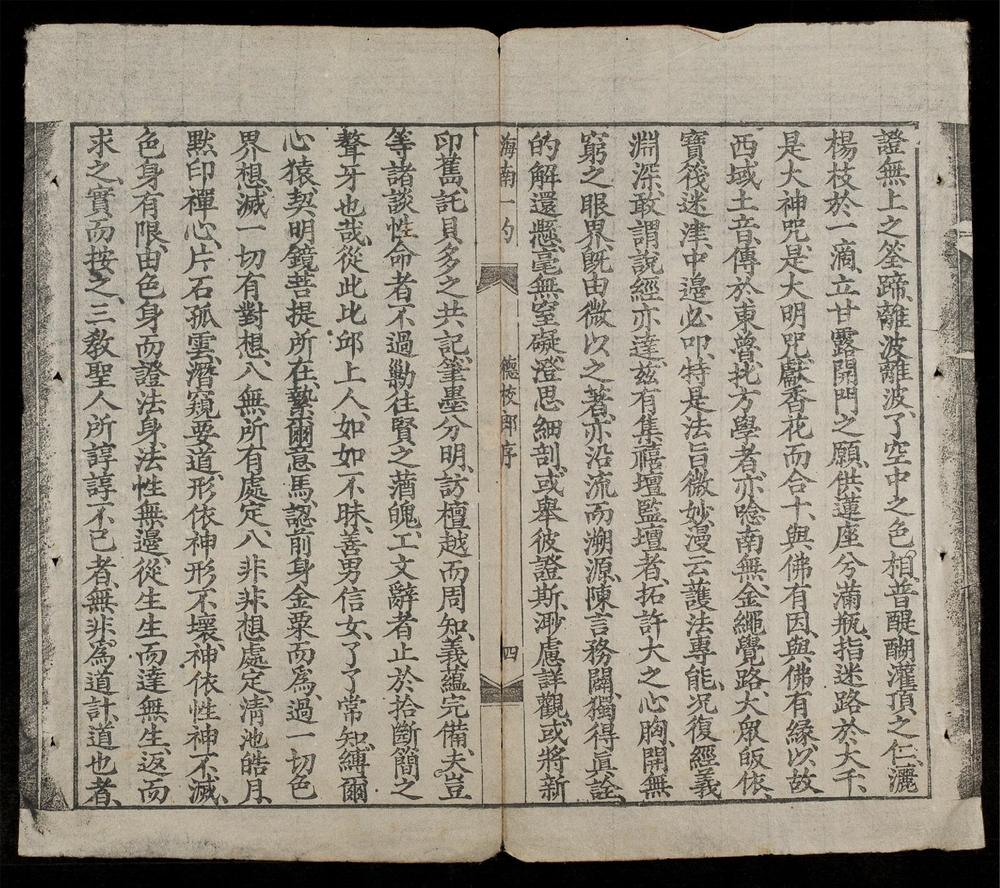 證無上之筌蹄、離波離波、了空中之色相、普醍醐灌頂之仁、灑
楊枝於一滴、立甘露開門之願、供蓮座兮滿瓶、指迷路於大千、
是大神咒、是大明咒、獻香花而合十、與佛有因、與佛有緣、以故
西域土音、傳於東魯、抡方學者、亦唸南無、金繩覺路、大眾皈依、
寶筏迷津、中邊必叩、特是法旨微妙、漫云護法專能、況復經義
淵深、敢謂說經亦達、茲有集禧壇監壇者、拓許大之心胸、開無
窮之眼界、既由微以之著、亦沿流而溯源、陳言務闢、獨得眞詮、
的解還懸、毫無窒礙、澄思細剖、或舉彼證斯、渺慮詳觀、或將新
海南一勺
德校郎序
四
印舊、託貝多之共記、筆墨分明、訪檀越而周知、義蘊完備、夫豈
等諸談性命者、不過勦往賢之藉魄、工文辭者、止於拾斷簡之
聱牙也哉、從此比邱上人、如如不昧、善男信女、了了常知、縛爾
心猿、契明鏡菩提所在、縶爾意馬、認前身金粟而爲、過一切色
界想、滅一切有對想、入無所有處定、入非非想處定、清池皓月、
默印禪心、片石孤雲、潛窺要道、形依神形不壞、神依性神不滅、
色身有限、由色身而證法身、法性無邊、從生生而達無生、返而
求之、實而按之、三敎聖人所諄諄不已者、無非爲道計、道也者、